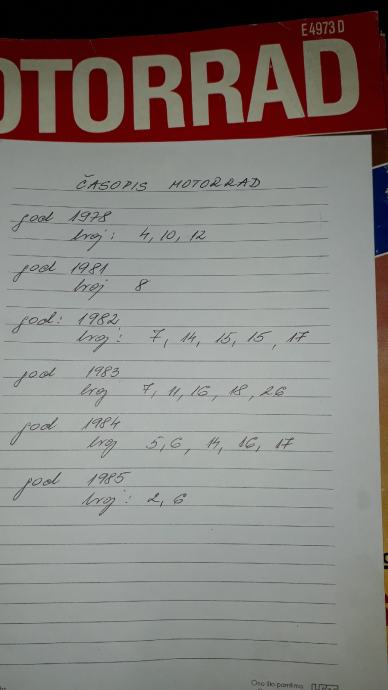 E4973D
OTORRAD
ČASOPIS MOTORRAD
god 1978
broj: 4, 10, 12
god 1981
broj 8
god: 1982
broj: 7, 14, 15, 15, 17
god 1983
broj 7, 11, 16, 18, 26
god 1984
broj 5, 6, 14, 16, 17
god 1985
broj: 2, 6
Ono što pamtimo